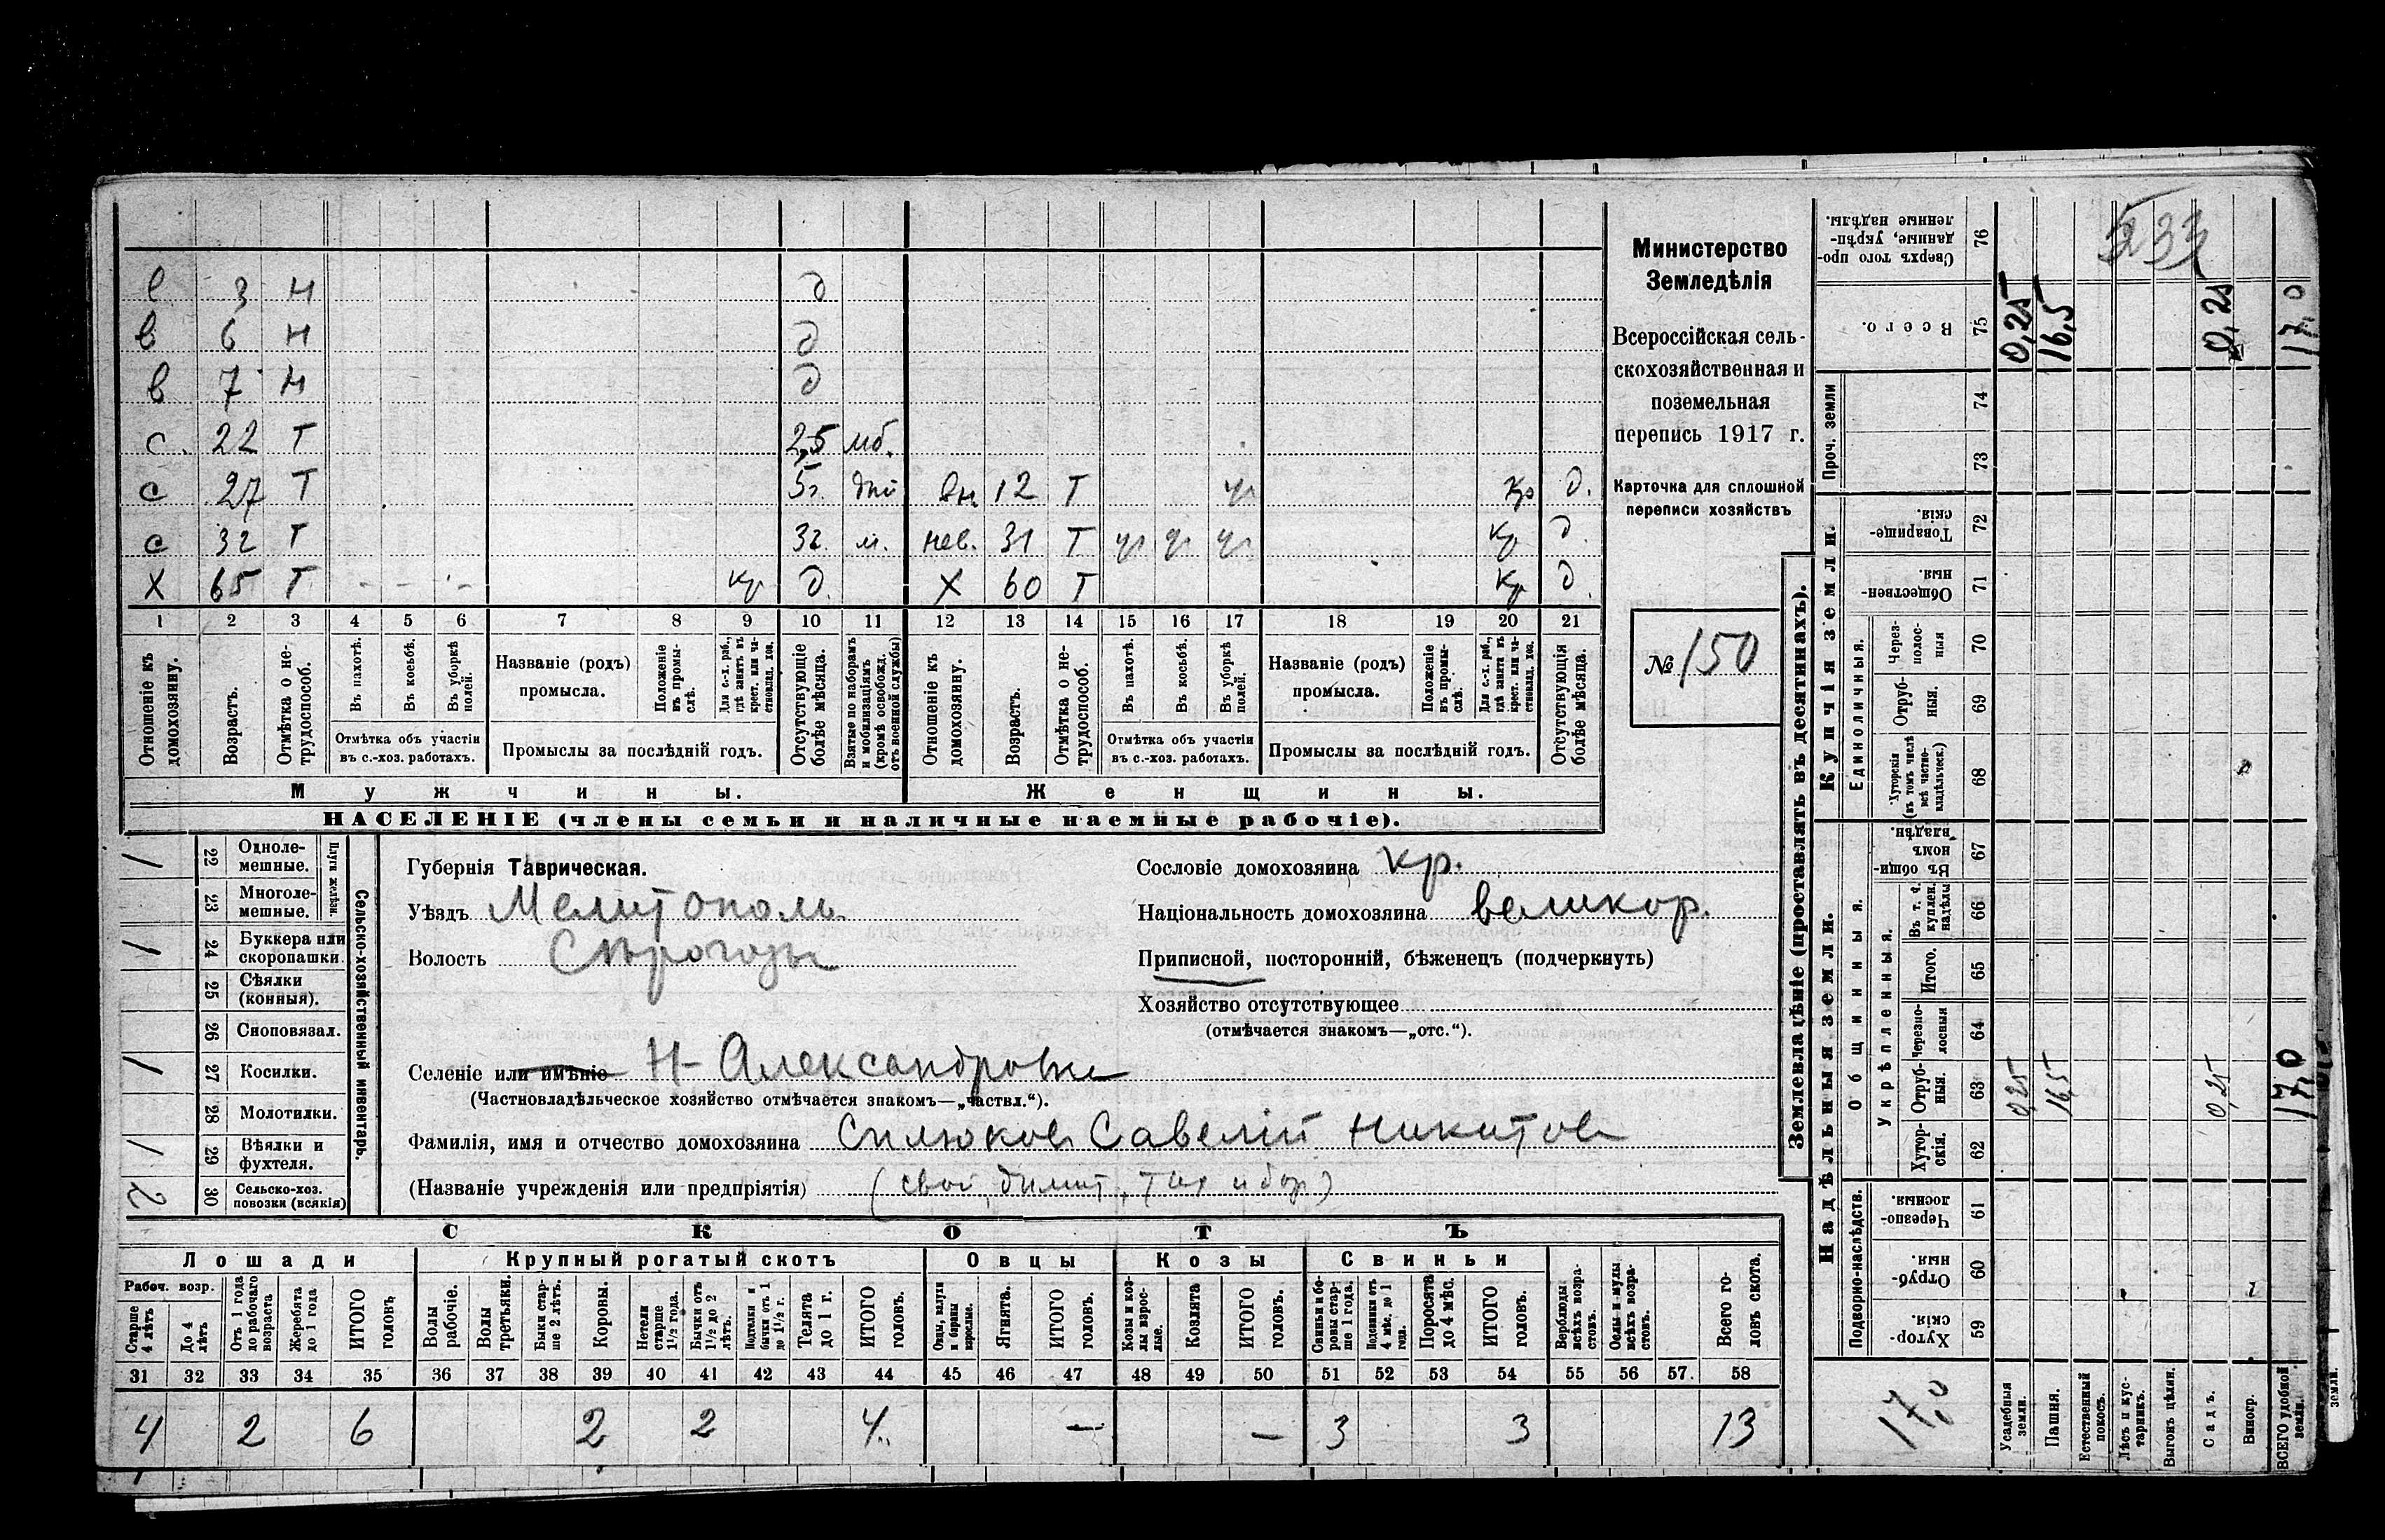 в 3 н д
в 6 н д
в 7 н д
с. 22 Т 2,5 мб.
с 27 Т 5 г. 12 Т кр д.
с 32 Т 3 г. м. нев. 31 Т кр д.
Х 65 Т - - - кр д. Х 60 Т кр д.
1 2 3 4 5 6 7 8 9 10 11 12 13 14 15 16 17 18 19 20 21
Отношеніе къ домохозяину.
Возрастъ.
Отмѣтка о нетрудоспособ.
Въ пахотѣ.
Въ косьбѣ.
Въ уборкѣ полей.
Отмѣтка объ участіи въ с.-хоз. работахъ.
Названіе (родъ) промысла.
Положеніе въ промыслѣ.
Для с.-х. раб., гдѣ занятъ въ крест. или частновлад. хоз.
Промыслы за послѣдній годъ.
Отсутствующіе болѣе мѣсяца.
Взятые по наборамъ и мобилизаціямъ (кромѣ освобожд. отъ военной службы)
Отношеніе къ домохозяину.
Возрастъ.
Отмѣтка о нетрудоспособ.
Въ пахотѣ.
Въ косьбѣ.
Въ уборкѣ полей.
Отмѣтка объ участіи въ с.-хоз. работахъ.
Названіе (родъ) промысла.
Положеніе въ промыслѣ.
Для с.-х. раб., гдѣ занятъ въ крест. или частновлад. хоз.
Промыслы за послѣдній годъ.
Отсутствующія болѣе мѣсяца.
Мужчины. Женщины.
НАСЕЛЕНІЕ (члены семьи и наличные наемные рабочіе).
Министерство
Земледѣлія
Всероссійская сель-
скохозяйственная и
поземельная
перепись 1917 г.
Карточка для сплошной
переписи хозяйствъ
№ 150
Сельско-хозяйственный инвентарь.
Плуги желѣзн.
/ 22 Однолемешные.
23 Многолемешные.
/ 24 Буккера или скоропашки.
25 Сѣялки (конныя).
26 Сноповязал.
/ 27 Косилки.
28 Молотилки.
/ 29 Вѣялки и фухтеля.
2 30 Сельско-хоз. повозки (всякія)
Губернія Таврическая.
Уѣздъ Мелитополь
Волость Сѣрогозы
Селеніе или имѣніе Н-Александровка
(Частновладѣльческое хозяйство отмѣчается знакомъ—„частвл.“).
Фамилія, имя и отчество домохозяина Силюковъ Савелій Никитовъ
(Названіе учрежденія или предпріятія)
Сословіе домохозяина кр.
Національность домохозяина великор.
Приписной, посторонній, бѣженецъ (подчеркнуть)
Хозяйство отсутствующее
(отмѣчается знакомъ—„отс.“).
СКОТЪ
Лошади Крупный рогатый скотъ Овцы Козы Свиньи
Рабоч. возр.
Старше 4 лѣтъ
До 4 лѣтъ
Отъ 1 года до рабочаго возраста
Жеребята до 1 года
ИТОГО головъ
Волы рабочіе.
Волы третьяки.
Быки старше 2 лѣтъ.
Коровы.
Нетели старше 1½ года.
Бычки отъ 1½ до 2 лѣтъ.
Подтелки и бычки отъ 1 до 1½ г.
Телята до 1 г.
ИТОГО головъ.
Овцы, валухи и бараны взрослые.
Ягнята.
ИТОГО головъ.
Козы и козлы взрослые.
Козлята
ИТОГО головъ.
Свиньи и боровы старше 1 года.
Подсвинки отъ 4 мѣс. до 1 года.
Поросята до 4 мѣс.
ИТОГО головъ.
Верблюды всѣхъ возрастовъ.
Ослы и мулы всѣхъ возрастовъ.
Всего головъ скота.
31 32 33 34 35 36 37 38 39 40 41 42 43 44 45 46 47 48 49 50 51 52 53 54 55 56 57. 58
4 2 6 2 2 4 — — 3 3 13
Землевладѣніе (проставлять въ десятинахъ).
Надѣльныя земли. Купчія земли. Проч. земли
Подворно-наслѣдств. Общинныя. Укрѣпленныя. Единоличныя.
76 Сверхъ того проданные, укрѣпленные надѣлы.
75 Всего. 0,25 16,5 0,25 17,0
74
73
72 Товарищескія.
71 Общественныя.
70 Черезполосныя
69 Отрубныя.
68 Хуторскія (въ томъ числѣ всѣ частновладѣльческ.)
67 Въ общинномъ владѣн.
66 Въ т. ч. куплен. надѣлы
65 Итого.
64 Черезполосныя
63 Отрубныя. 0,25 16,5 0,25 17,0
62 Хуторскія.
61 Черезполосныя.
60 Отрубныя.
59 Хуторскія.
17,0
Усадебныя земли.
Пашня.
Естественный покосъ.
Лѣсъ и кустарникъ.
Выгонъ цѣлин.
Садъ.
Виногр.
ВСЕГО удобной земли.
земли.
533